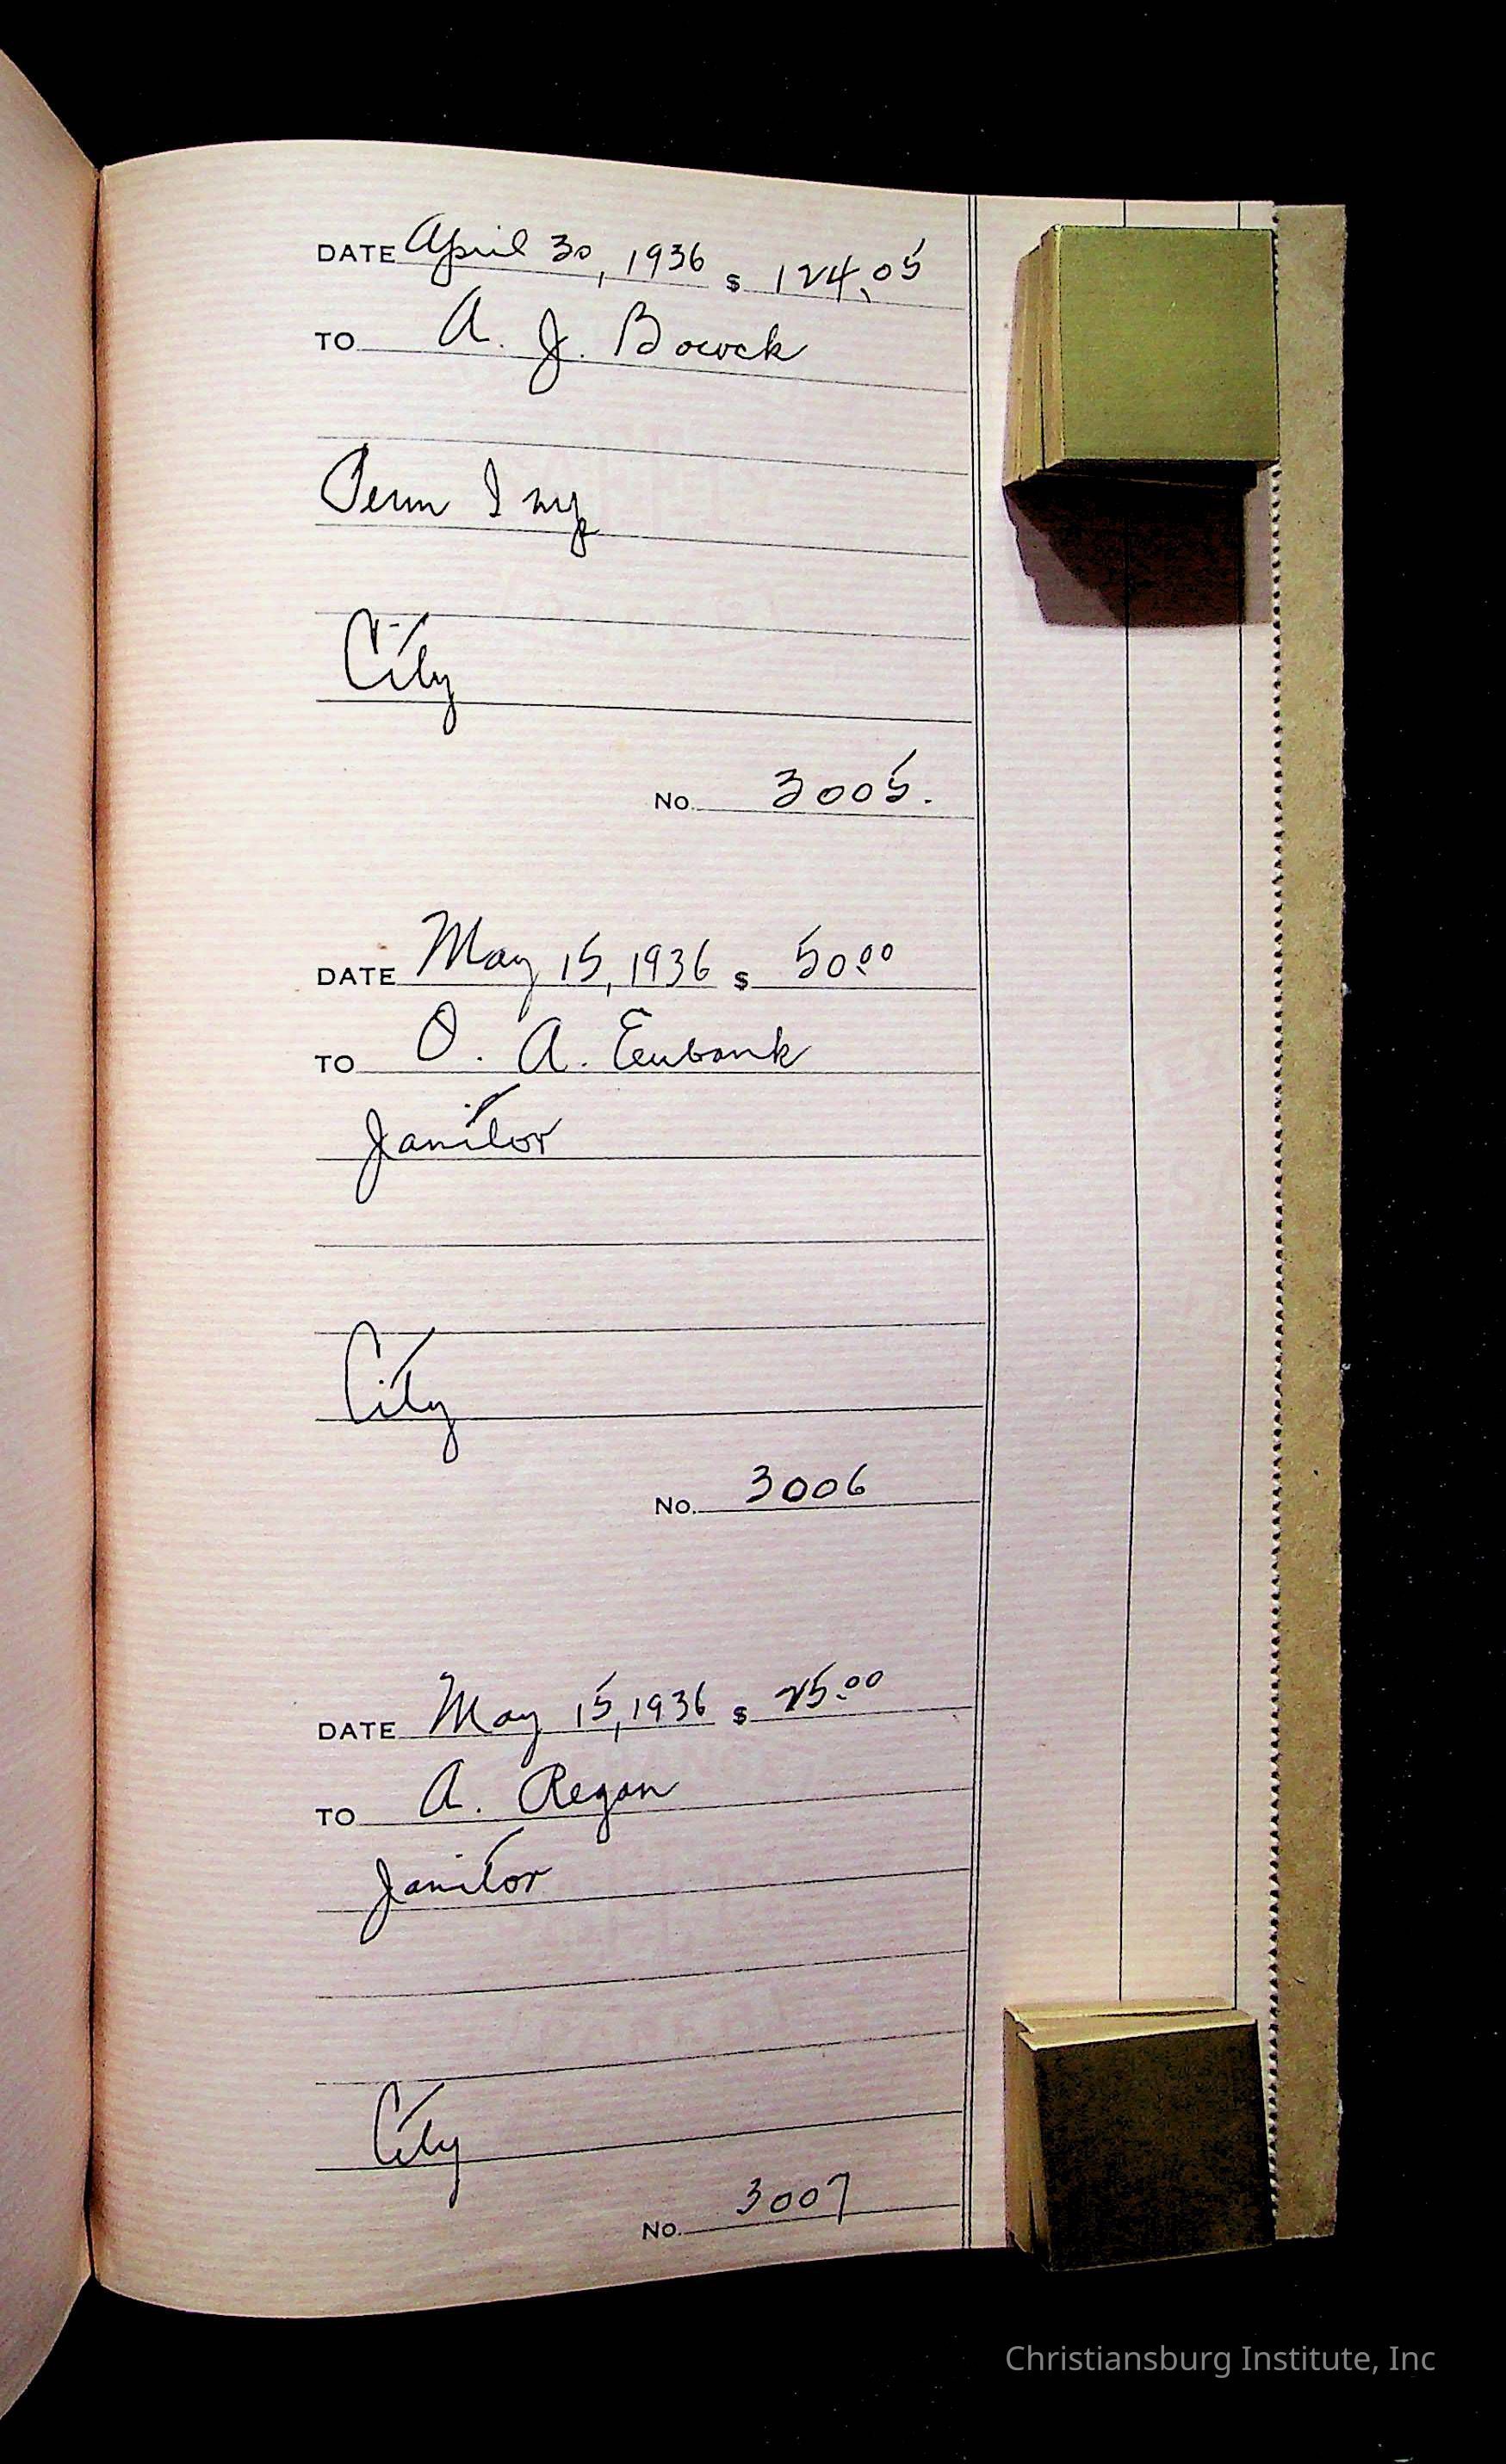 DATE April 30, 1936 $ 124.05
TO A. J. Bowck
Perm
City
No. 3005.
DATE May 15, 1936 $ 50.00
TO O. A. Eubank
Janitor
City
No. 3006
DATE May 15, 1936 $ 25.00
TO A. Regan
Janitor
City
No. 3007
Christiansburg Institute, Inc